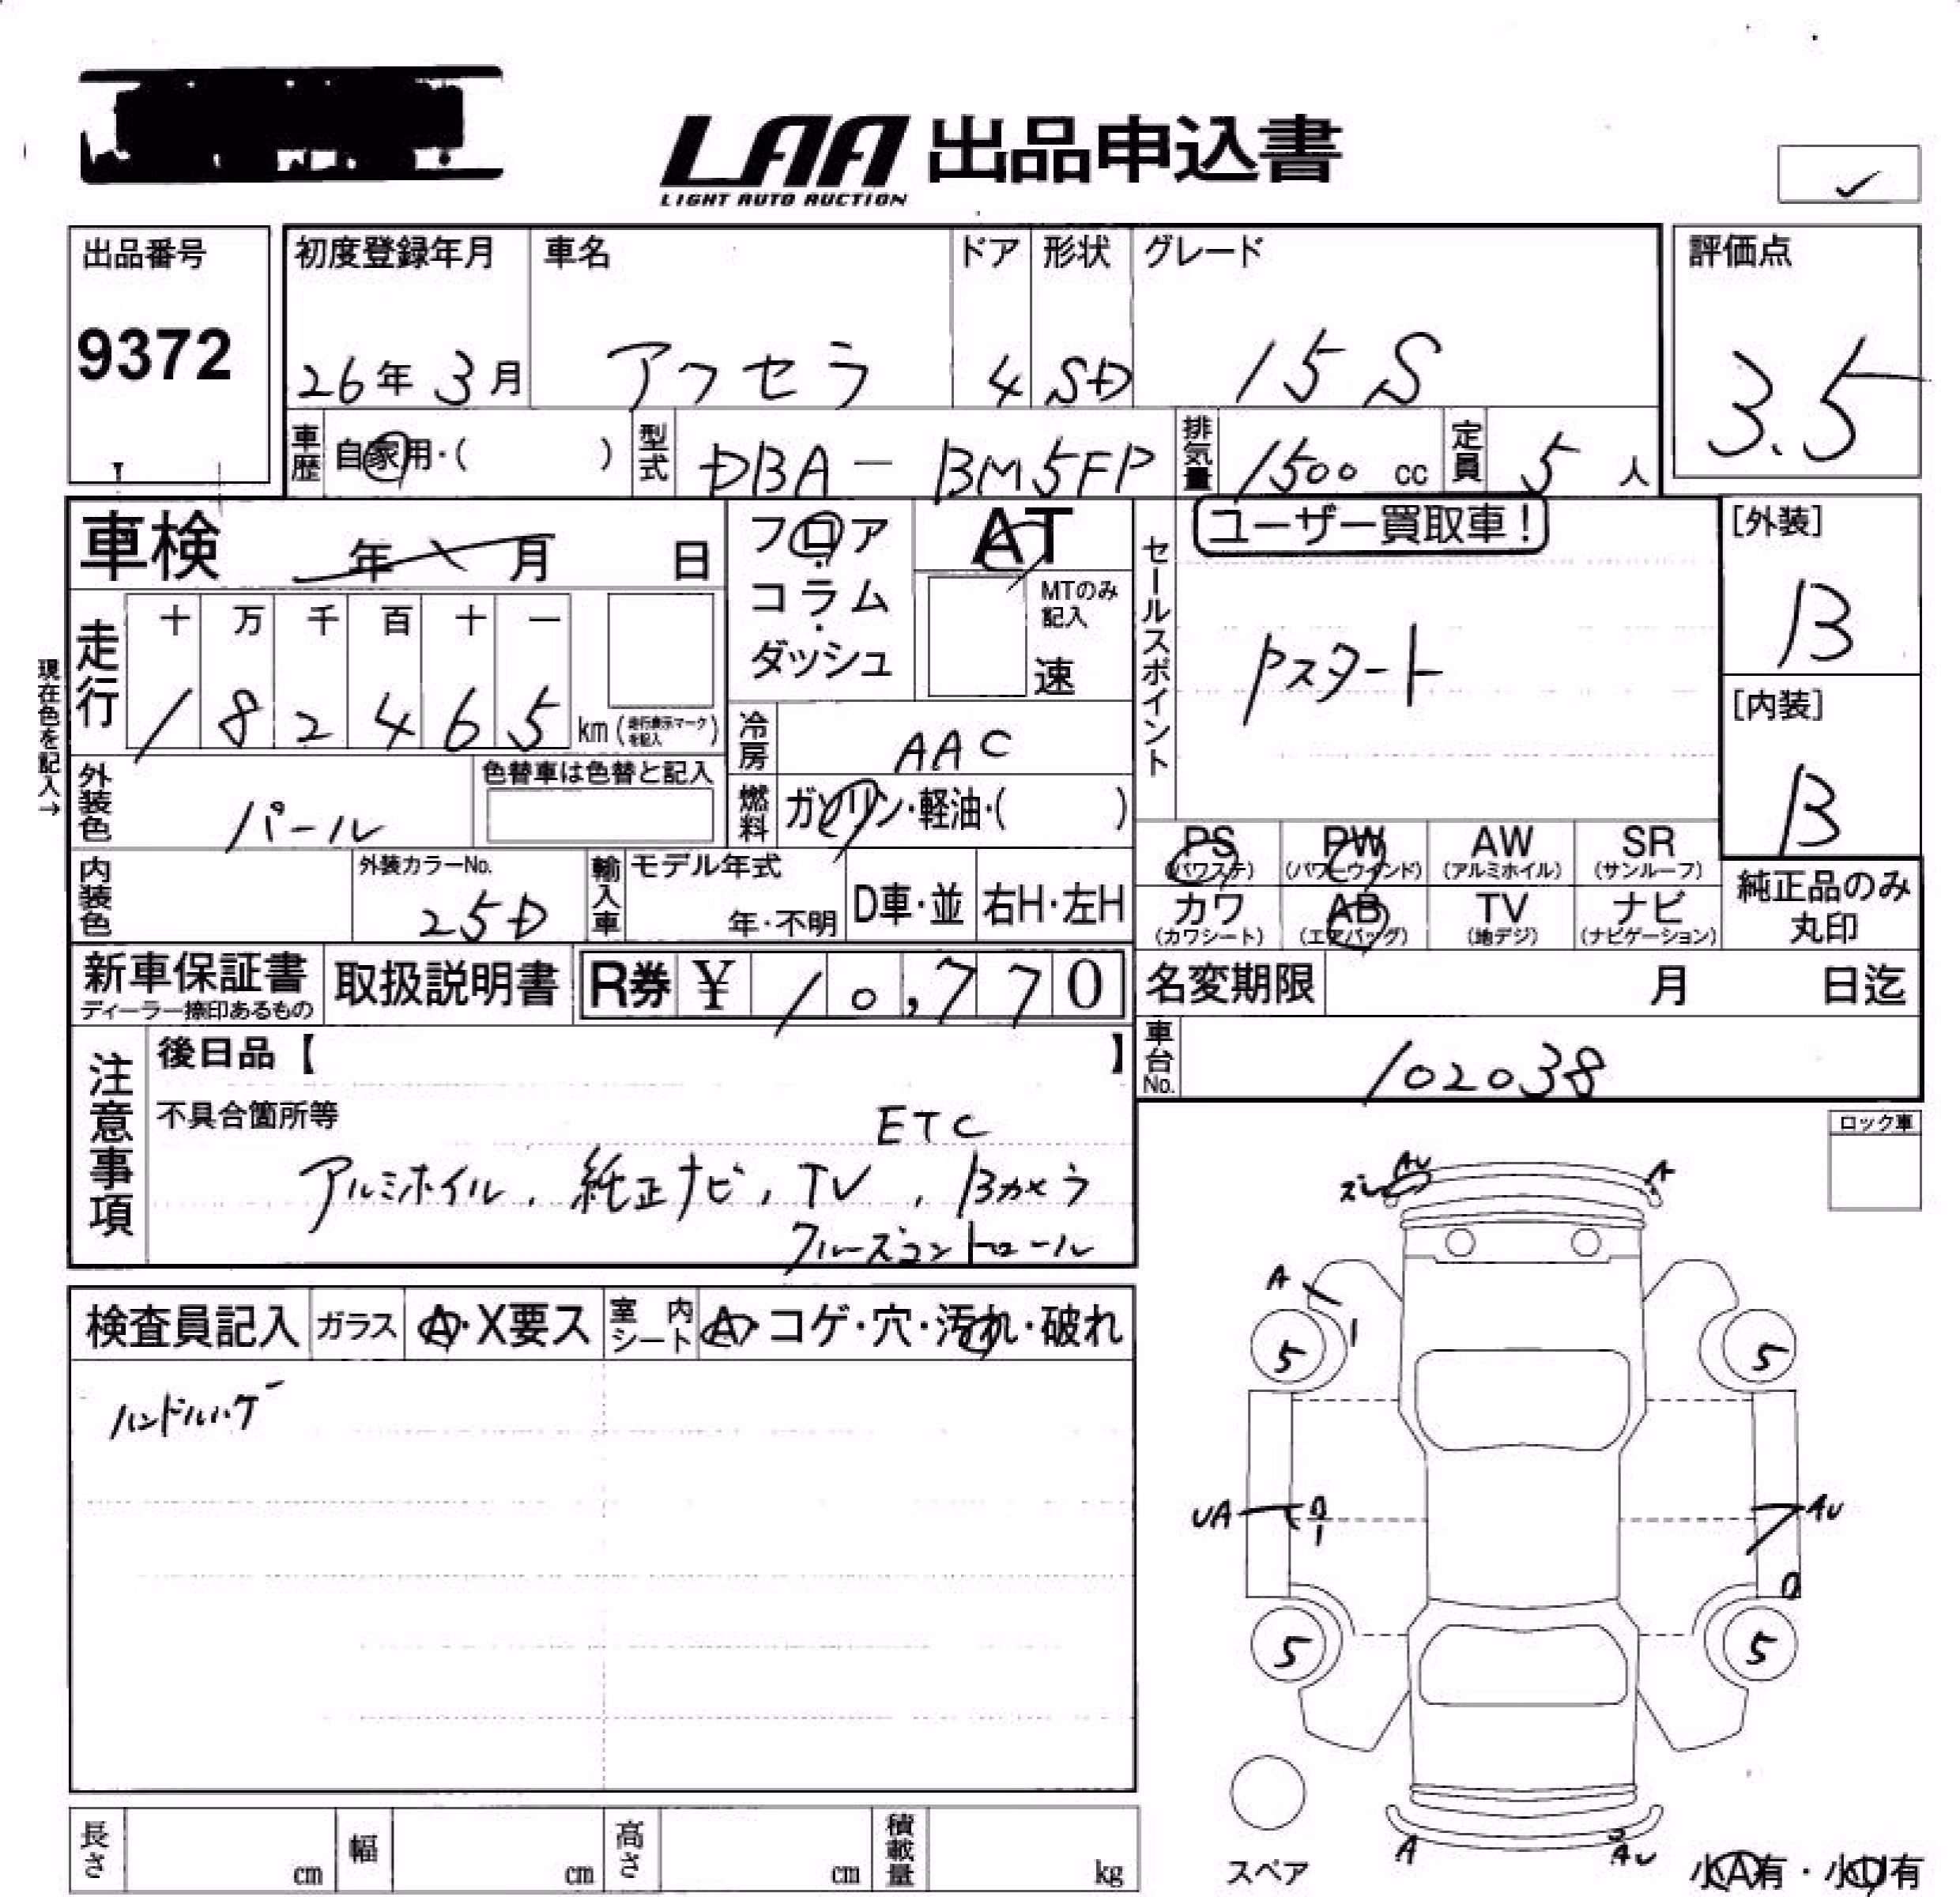 LAA 出品申込書
LIGHT AUTO AUCTION
出品番号
9372
初度登録年月
26年 3月
車名
アクセラ
ドア
4
形状
SD
グレード
15S
評価点
3.5
車歴 自家用・( )
型式 DBA-BM5FP
排気量 1500 cc
定員 5 人
車検 年 月 日
フロア・コラム・ダッシュ
AT
MTのみ記入
速
セールスポイント
ユーザー買取車!
Pスタート
[外装]
B
[内装]
B
現在色を記入→
走行
十 万 千 百 十 一
1 8 2 4 6 5 km (走行表示マークを記入)
冷房 AAC
外装色 パール
色替車は色替と記入
燃料 ガソリン・軽油・( )
PS (パワステ)
PW (パワーウインド)
AW (アルミホイル)
SR (サンルーフ)
カワ (カワシート)
AB (エアバッグ)
TV (地デジ)
ナビ (ナビゲーション)
純正品のみ丸印
内装色
外装カラーNo.
25D
輸入車
モデル年式
年・不明
D車・並
右H・左H
新車保証書
ディーラー捺印あるもの
取扱説明書
R券 ¥ 10,770
名変期限 月 日迄
車台No. 102038
注意事項
後日品【 】
不具合箇所等
ETC
アルミホイル、純正ナビ、TV、Bカメラ
クルーズコントロール
ロック車
検査員記入
ガラス A・X要ス
室内シート A・コゲ・穴・汚れ・破れ
ハンドルハゲ
ズレ
AU
A
A
5
5
UA
AU
5
5
A
AU
スペア
小A有・小U有
長さ cm
幅 cm
高さ cm
積載量 kg